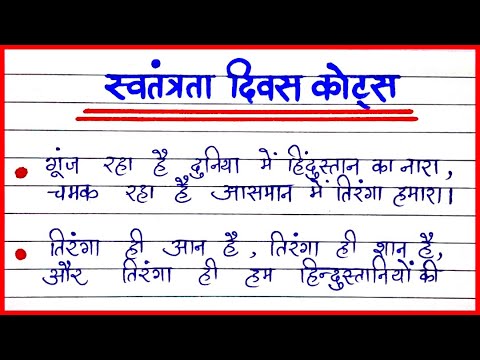 स्वतंत्रता दिवस कोट्स
गूंज रहा है दुनिया में हिंदुस्तान का नारा,
चमक रहा है आसमान में तिरंगा हमारा।
तिरंगा ही आन है, तिरंगा ही शान है,
और तिरंगा ही हम हिन्दुस्तानियों की